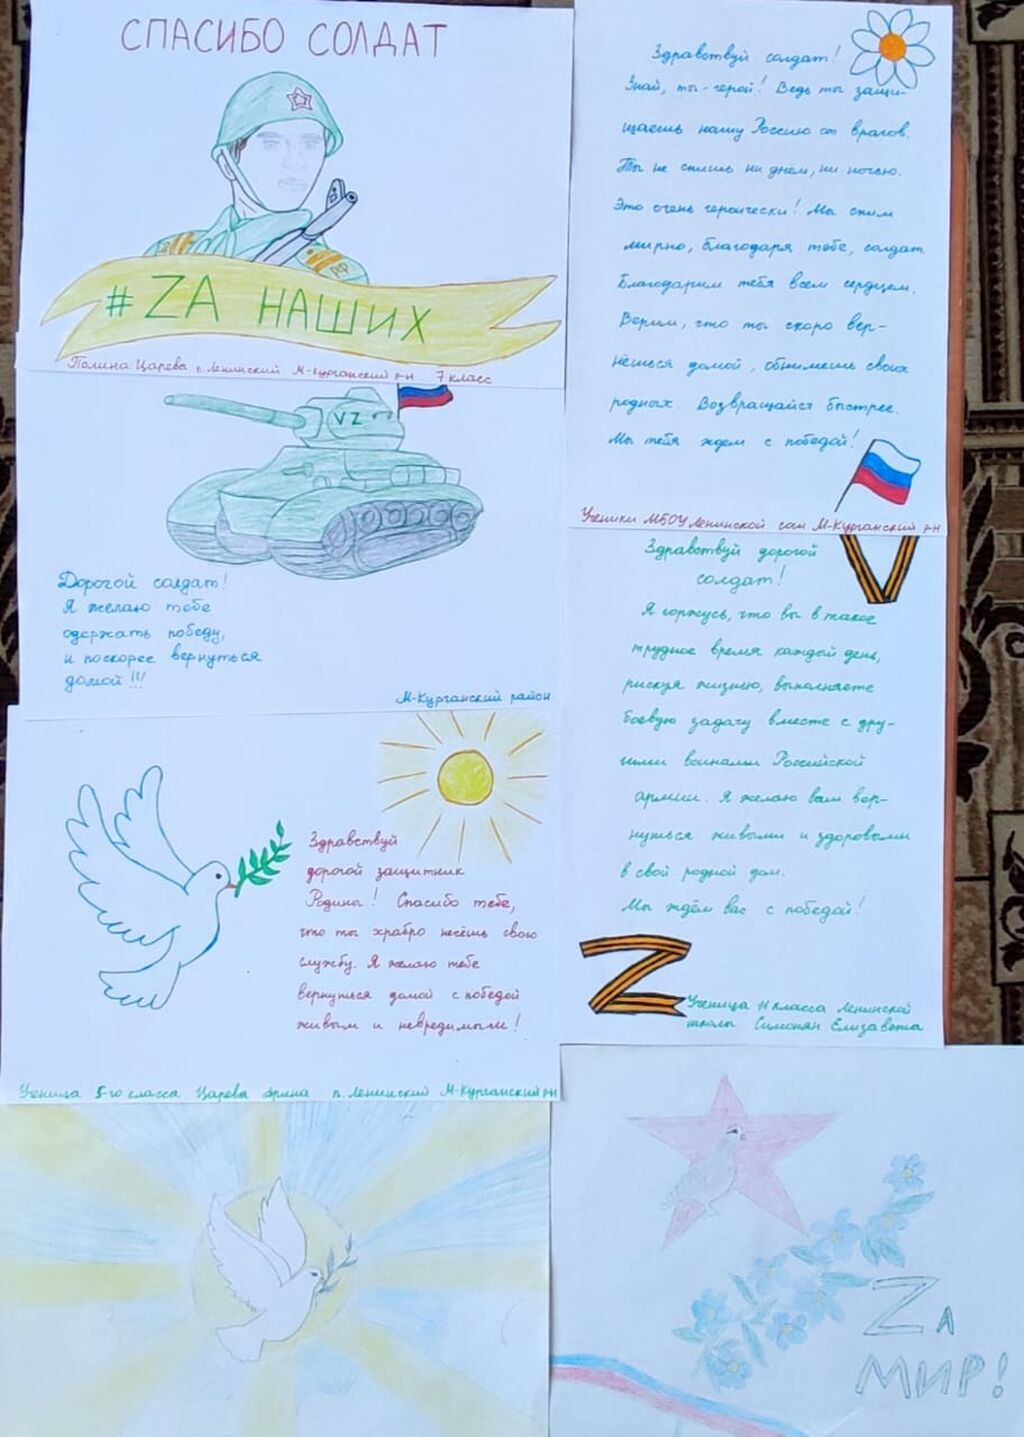 СПАСИБО СОЛДАТ
РФ
#ZА НАШИХ
Полина Царева п. Ленинский М-Курганский р-н 7 класс
VZ
Дорогой солдат!
Я желаю тебе
одержать победу,
и поскорее вернуться
домой!!!
М-Курганский район
Здравствуй
дорогой защитник
Родины! Спасибо тебе,
что ты храбро несёшь свою
службу. Я желаю тебе
вернуться домой с победой
живым и невредимым!
Ученица 5-го класса Царева Арина п. Ленинский М-Курганский р-н
Здравствуй солдат!
Знай, ты - герой! Ведь ты защи-
щаешь нашу Россию от врагов.
Ты не спишь ни днём, ни ночью.
Это очень героически! Мы спим
мирно, благодаря тебе, солдат.
Благодарим тебя всем сердцем.
Верим, что ты скоро вер-
нёшься домой, обнимешь своих
родных. Возвращайся быстрее.
Мы тебя ждем с победой!
Ученики МБОУ Ленинской сош М-Курганский р-н
Здравствуй дорогой
солдат!
V
Я горжусь, что вы в такое
трудное время каждый день,
рискуя жизнею, выполняете
боевую задачу вместе с дру-
гими воинами Российской
армии. Я желаю вам вер-
нуться живыми и здоровыми
в свой родной дом.
Мы ждём вас с победой!
Z
Ученица 11 класса Ленинской
школы Симонян Елизавета
ZА
МИР!